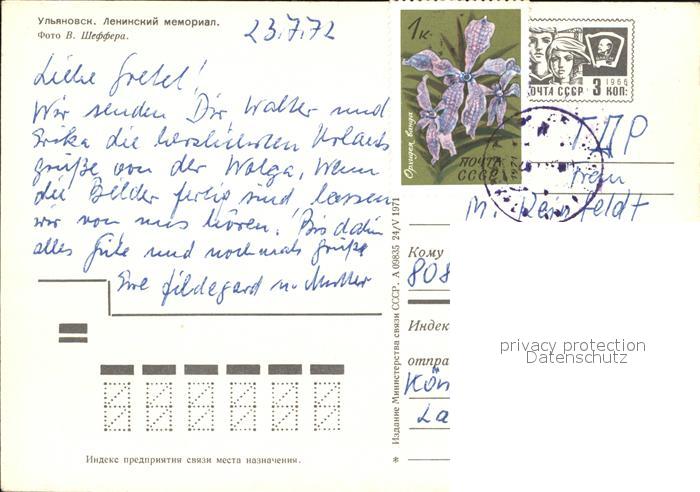 Ульяновск. Ленинский мемориал.
Фото В. Шеффера.
23.7.72
Liebe Gretel!
Wir senden Dir Walter und
Erika die herzlichsten Urlaubs
grüße von der Wolga, Wenn
die Bilder fertig sind, lassen
wir von uns hören. Bis dahin
alles Gute und nochmals Grüße
Eure Hildegard u. Mutter
Индекс предприятия связи места назначения.
Издание Министерства связи СССР. А 09835 24/V 1971
1к.
Орхидея ванда
ПОЧТА
СССР
1971
ПОЧТА СССР 3 КОП.
1966
ГДР
M. Reinfeldt
Кому
808
Индек
отпра
Kön
La
privacy protection
Datenschutz